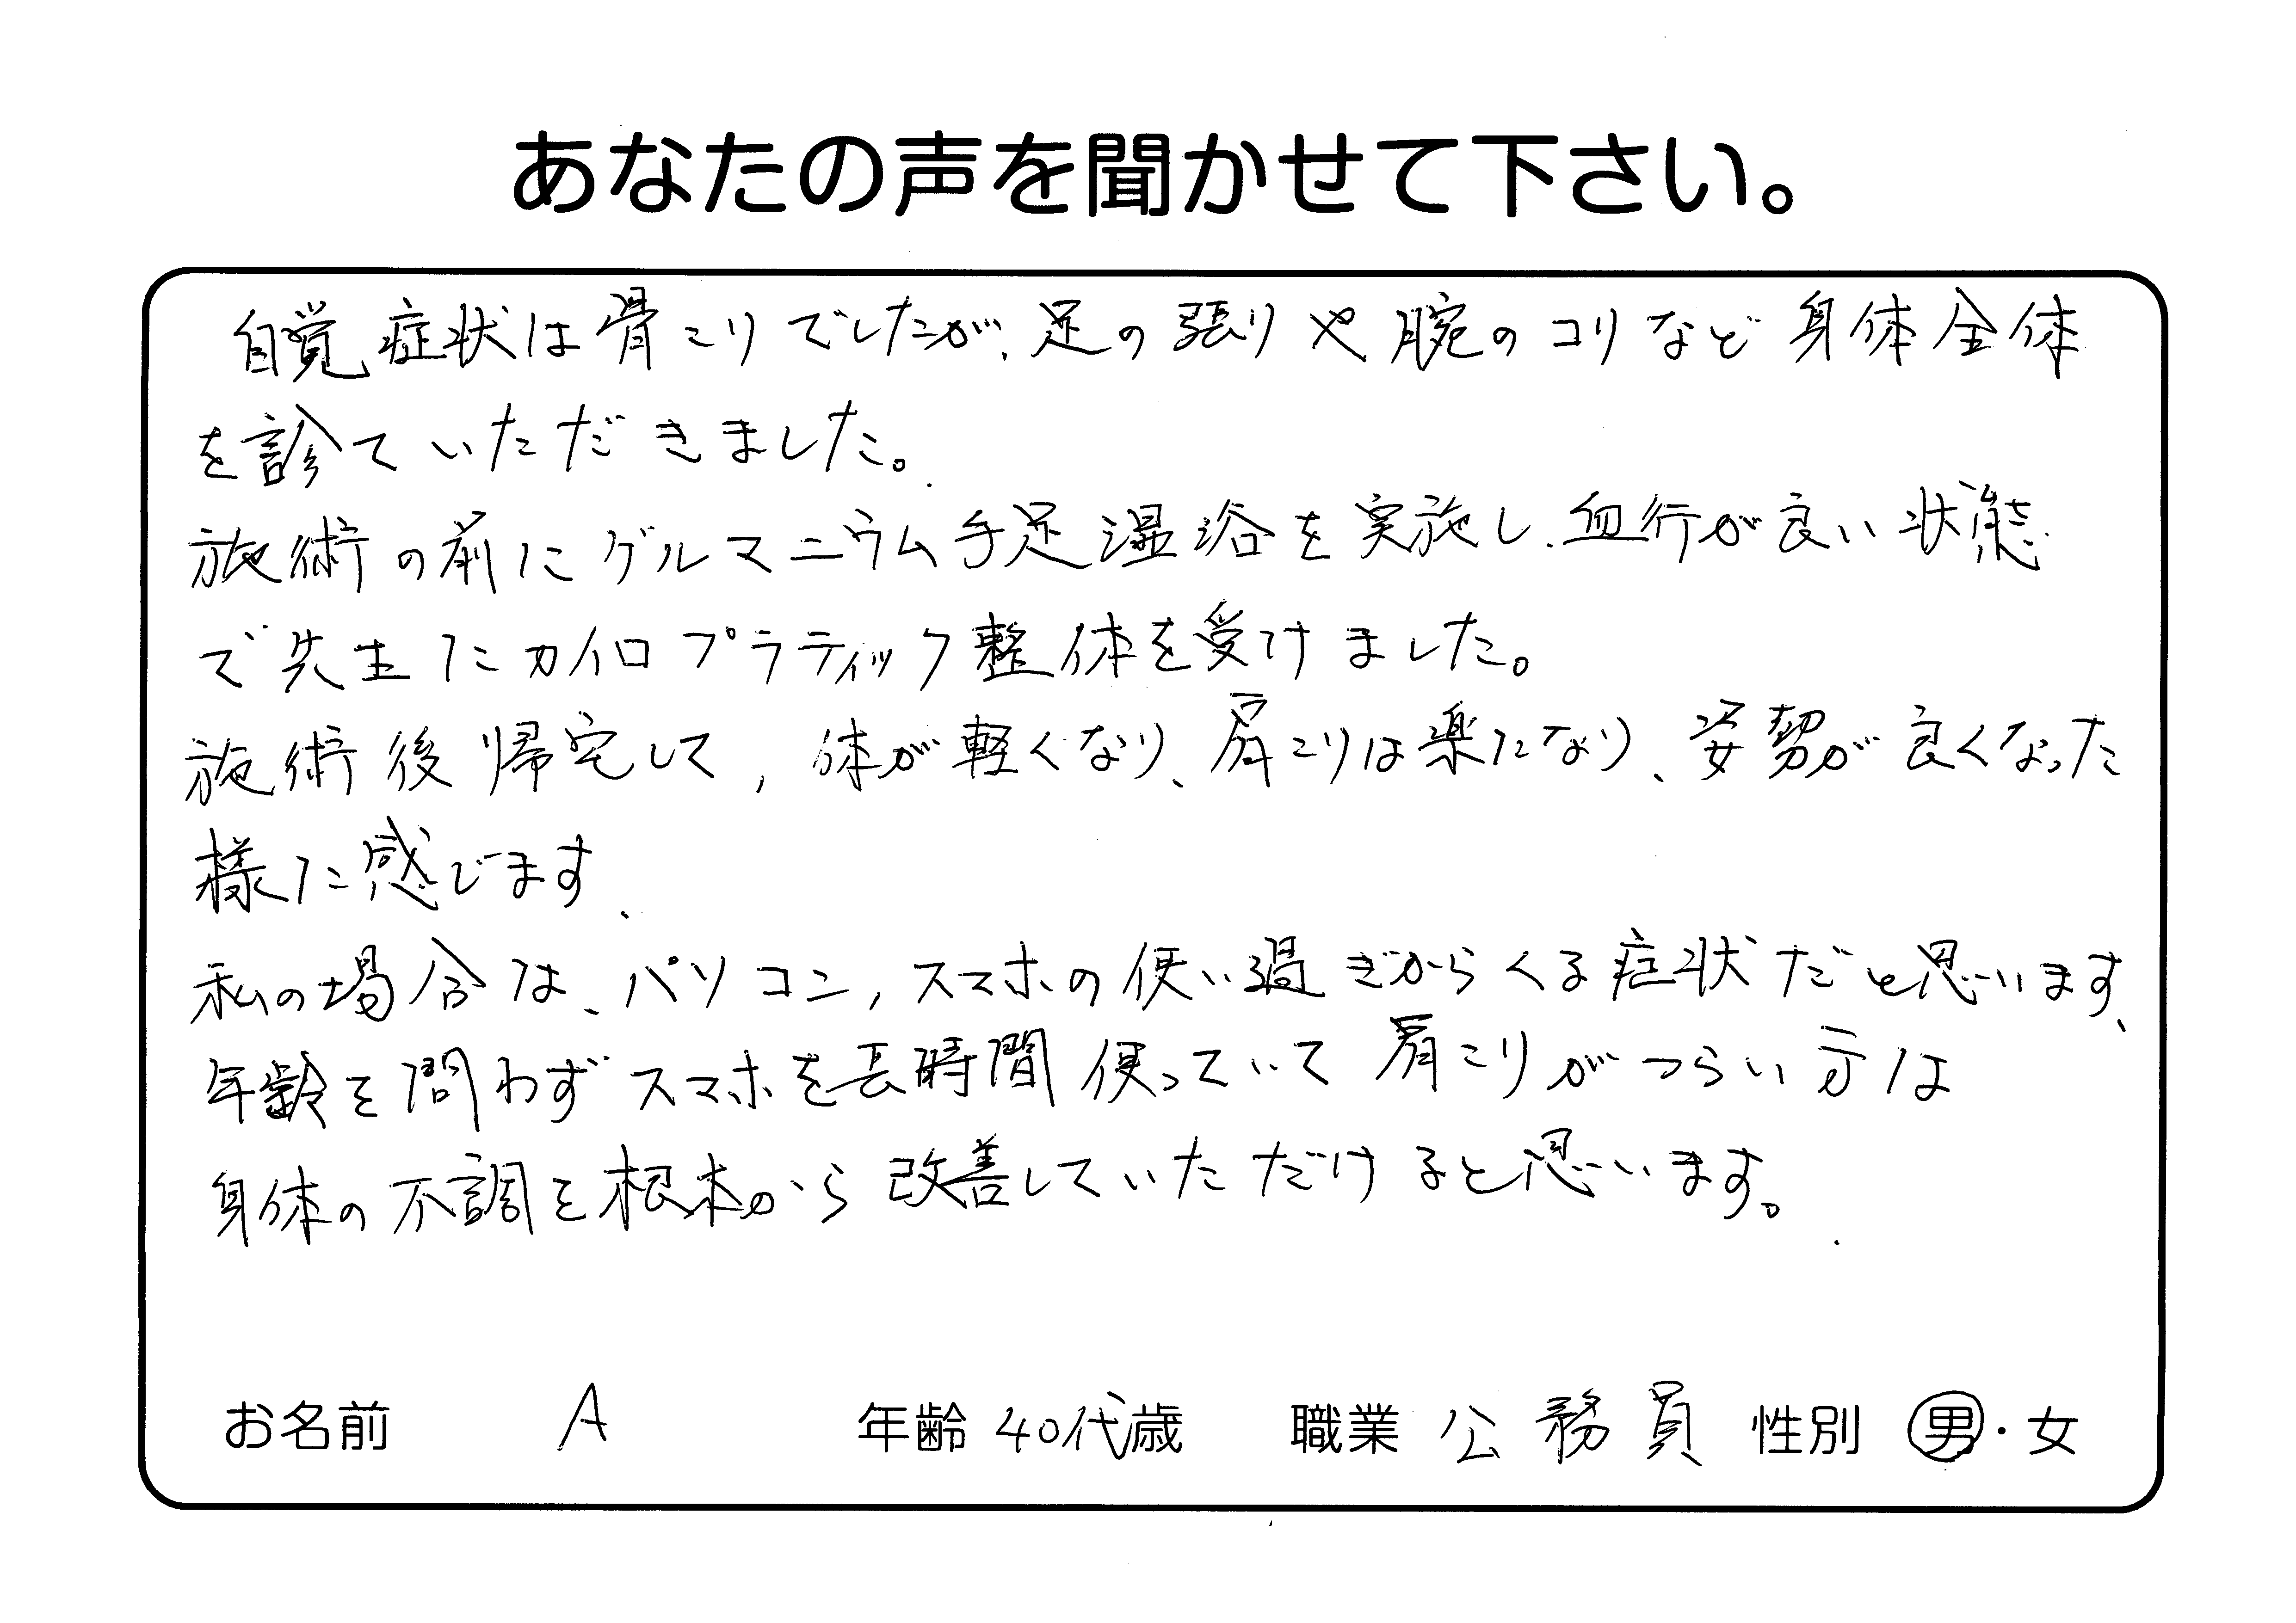 あなたの声を聞かせて下さい。
自覚症状は骨こりでしたが、足の張りや腕のコリなど身体全体
を診ていただきました。
施術の前にゲルマニウム手足湿浴を実施し、血行が良い状態
で先生にカイロプラティック整体を受けました。
施術後帰宅して、体が軽くなり、肩こりは楽になり、姿勢が良くなった
様に感じます、
私の場合は、パソコン、スマホの使い過ぎからくる症状だと思います、
年齢を問わずスマホを長時間使っていて肩こりがつらい方は
身体の不調を根本から改善していただけると思います。
お名前 A 年齢 40代歳 職業 公務員 性別 男・女